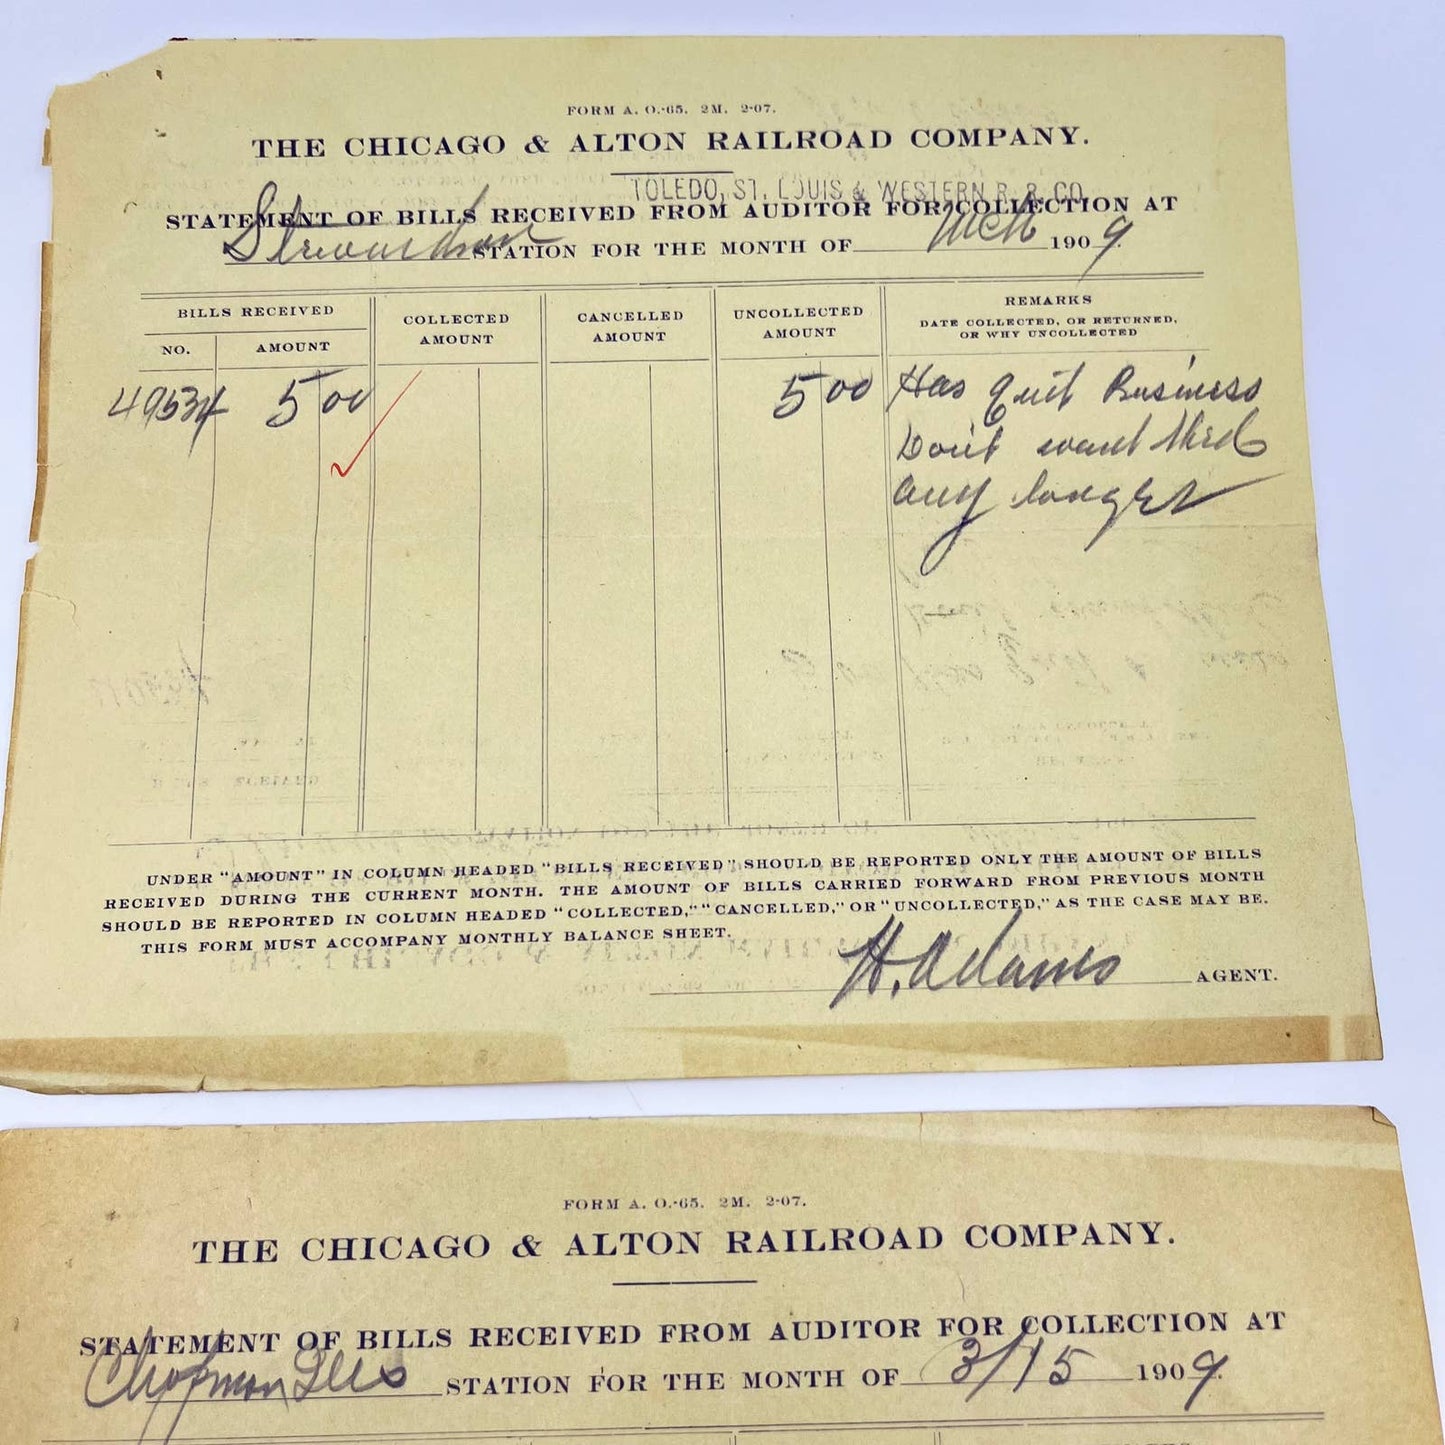 FORM A. O.-65. 2M. 2-07.
THE CHICAGO & ALTON RAILROAD COMPANY.
TOLEDO, ST. LOUIS & WESTERN R. R. CO.
STATEMENT OF BILLS RECEIVED FROM AUDITOR FOR COLLECTION AT
Stewardson STATION FOR THE MONTH OF Mch 1909.
BILLS RECEIVED
NO. AMOUNT
COLLECTED AMOUNT
CANCELLED AMOUNT
UNCOLLECTED AMOUNT
REMARKS
DATE COLLECTED, OR RETURNED,
OR WHY UNCOLLECTED
49534 5 00 5 00 Has Quit Business
Don't want
any longer
UNDER "AMOUNT" IN COLUMN HEADED "BILLS RECEIVED" SHOULD BE REPORTED ONLY THE AMOUNT OF BILLS
RECEIVED DURING THE CURRENT MONTH. THE AMOUNT OF BILLS CARRIED FORWARD FROM PREVIOUS MONTH
SHOULD BE REPORTED IN COLUMN HEADED "COLLECTED," "CANCELLED," OR "UNCOLLECTED," AS THE CASE MAY BE.
THIS FORM MUST ACCOMPANY MONTHLY BALANCE SHEET.
H. Adams AGENT.
FORM A. O.-65. 2M. 2-07.
THE CHICAGO & ALTON RAILROAD COMPANY.
STATEMENT OF BILLS RECEIVED FROM AUDITOR FOR COLLECTION AT
Chapman Ills STATION FOR THE MONTH OF 3/15 1909.